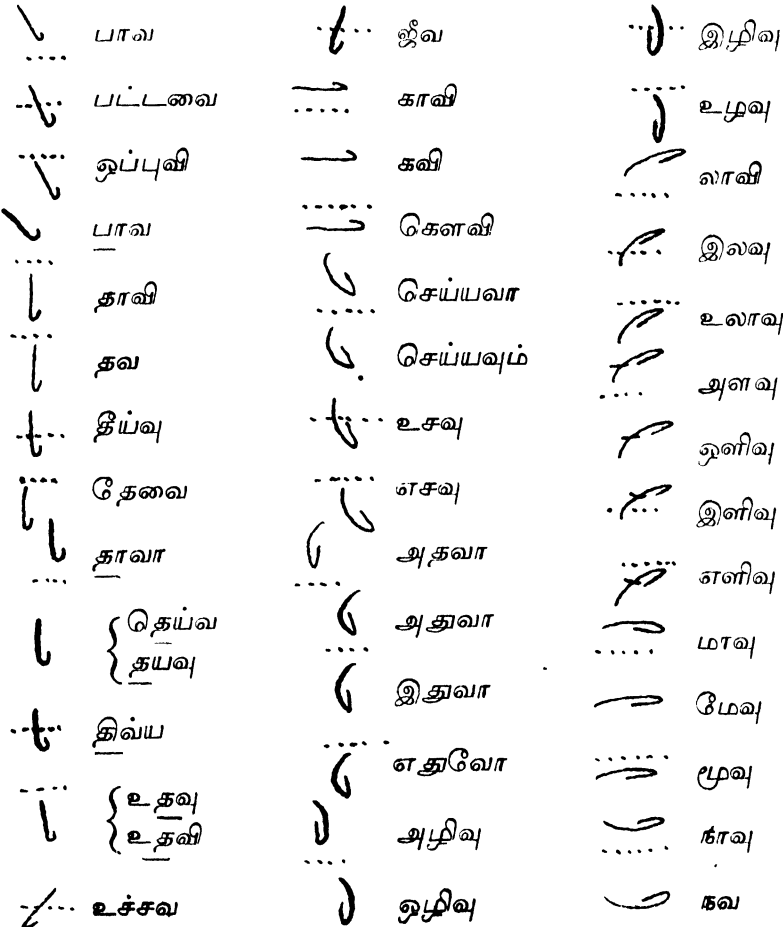 பாவ
பட்டவை
ஒப்புவி
பாவ
தாவி
தவ
தீய்வு
தேவை
தாவா
தெய்வ
தயவு
திவ்ய
உதவு
உதவி
உச்சவ
ஜீவ
காவி
கவி
கௌவி
செய்யவா
செய்யவும்
உசவு
எசவு
அதவா
அதுவா
இதுவா
எதுவோ
அழிவு
ஒழிவு
இழிவு
உழவு
லாவி
இலவு
உலாவு
அளவு
ஒளிவு
இளிவு
எளிவு
மாவு
மேவு
மூவு
நாவு
நவ